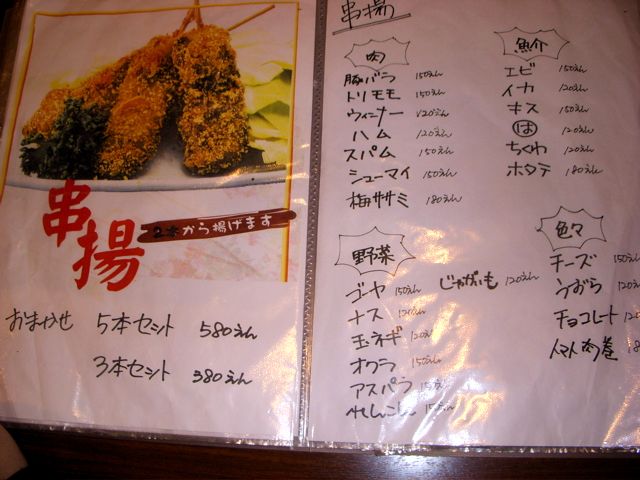 串揚
2本から揚げます
おまかせ 5本セット 580えん
3本セット 380えん
串揚
肉
豚バラ 150えん
トリモモ 150えん
ウィンナー 120えん
ハム 120えん
スパム 150えん
シューマイ 150えん
梅ササミ 180えん
魚介
エビ 150えん
イカ 120えん
キス 150えん
は 120えん
ちくわ 120えん
ホタテ 180えん
野菜
ゴーヤ 150えん じゃがいも 120えん
ナス 120えん
玉ネギ 120えん
オクラ 150えん
アスパラ 150えん
れんこん 150えん
色々
チーズ 150えん
うずら 120え
チョコレート 120
トマト肉巻 18